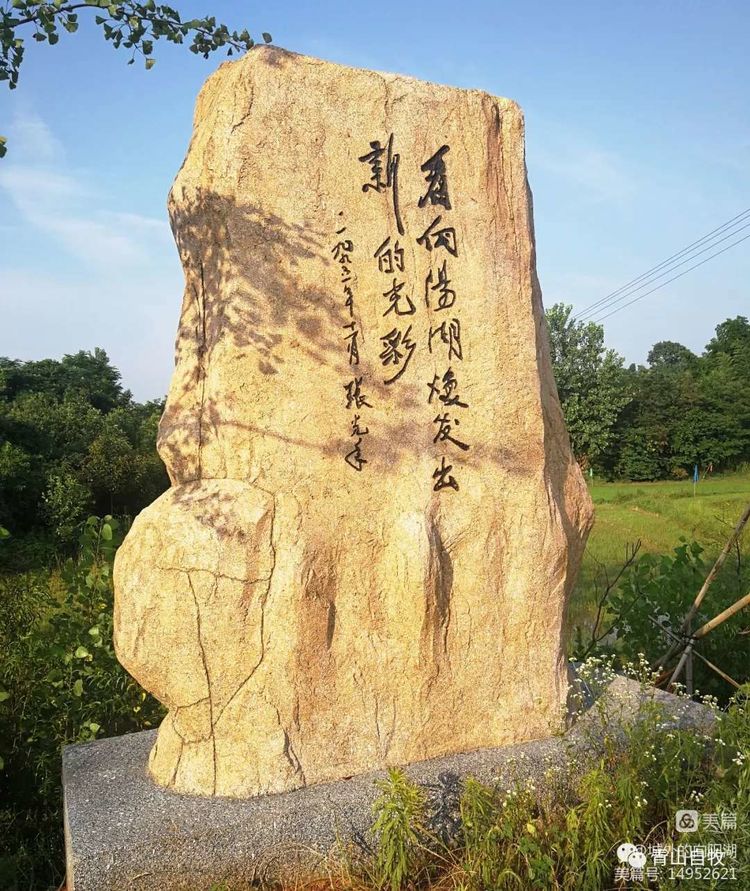 看向陽湖焕发出
新的光彩
二〇〇一年十一月 張光年
美篇
青山自牧
美篇号: 14952621